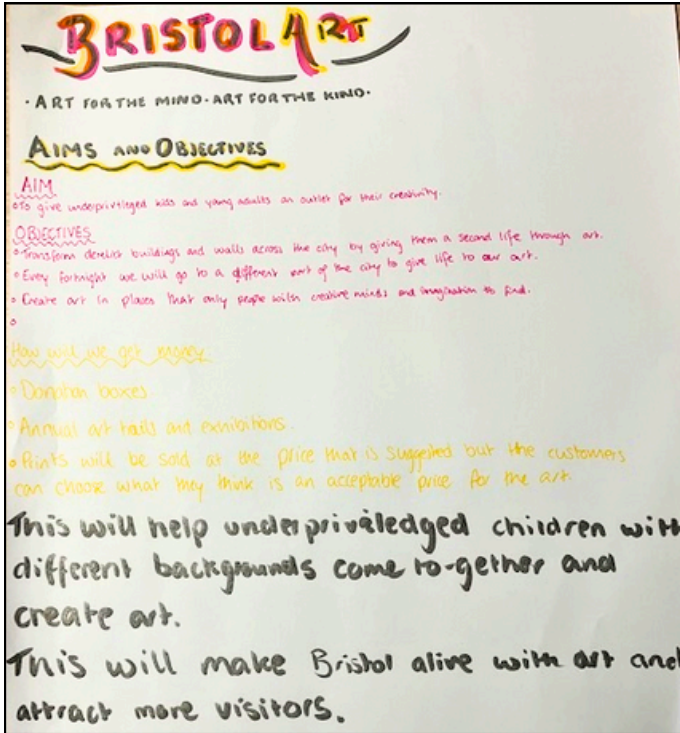 BRISTOL ART
· ART FOR THE MIND · ART FOR THE KIND ·
AIMS AND OBJECTIVES
AIM
• To give underprivileged kids and young adults an outlet for their creativity.
OBJECTIVES
• Transform derelict buildings and walls across the city by giving them a second life through art.
• Every fortnight we will go to a different part of the city to give life to our art.
• Create art in places that only people with creative minds and imagination to find.
•
How will we get money
• Donation boxes
• Annual art and exhibitions.
• Prints will be sold at the price that is suggested but the customers
can choose what they think is an acceptable price for the art.
This will help underpriviledged children with
different backgrounds come to-gether and
create art.
This will make Bristol alive with art and
attract more visitors.